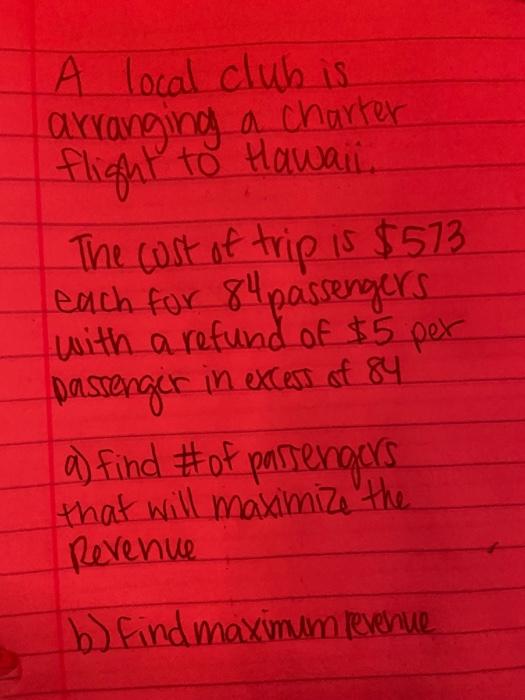 A local club is
arranging a charter
flight to Hawaii.
The cost of trip is $573
each for 84 passengers
with a refund of $5 per
passenger in excess of 84
a) find # of passengers
that will maximize the
Revenue
b) find maximum revenue